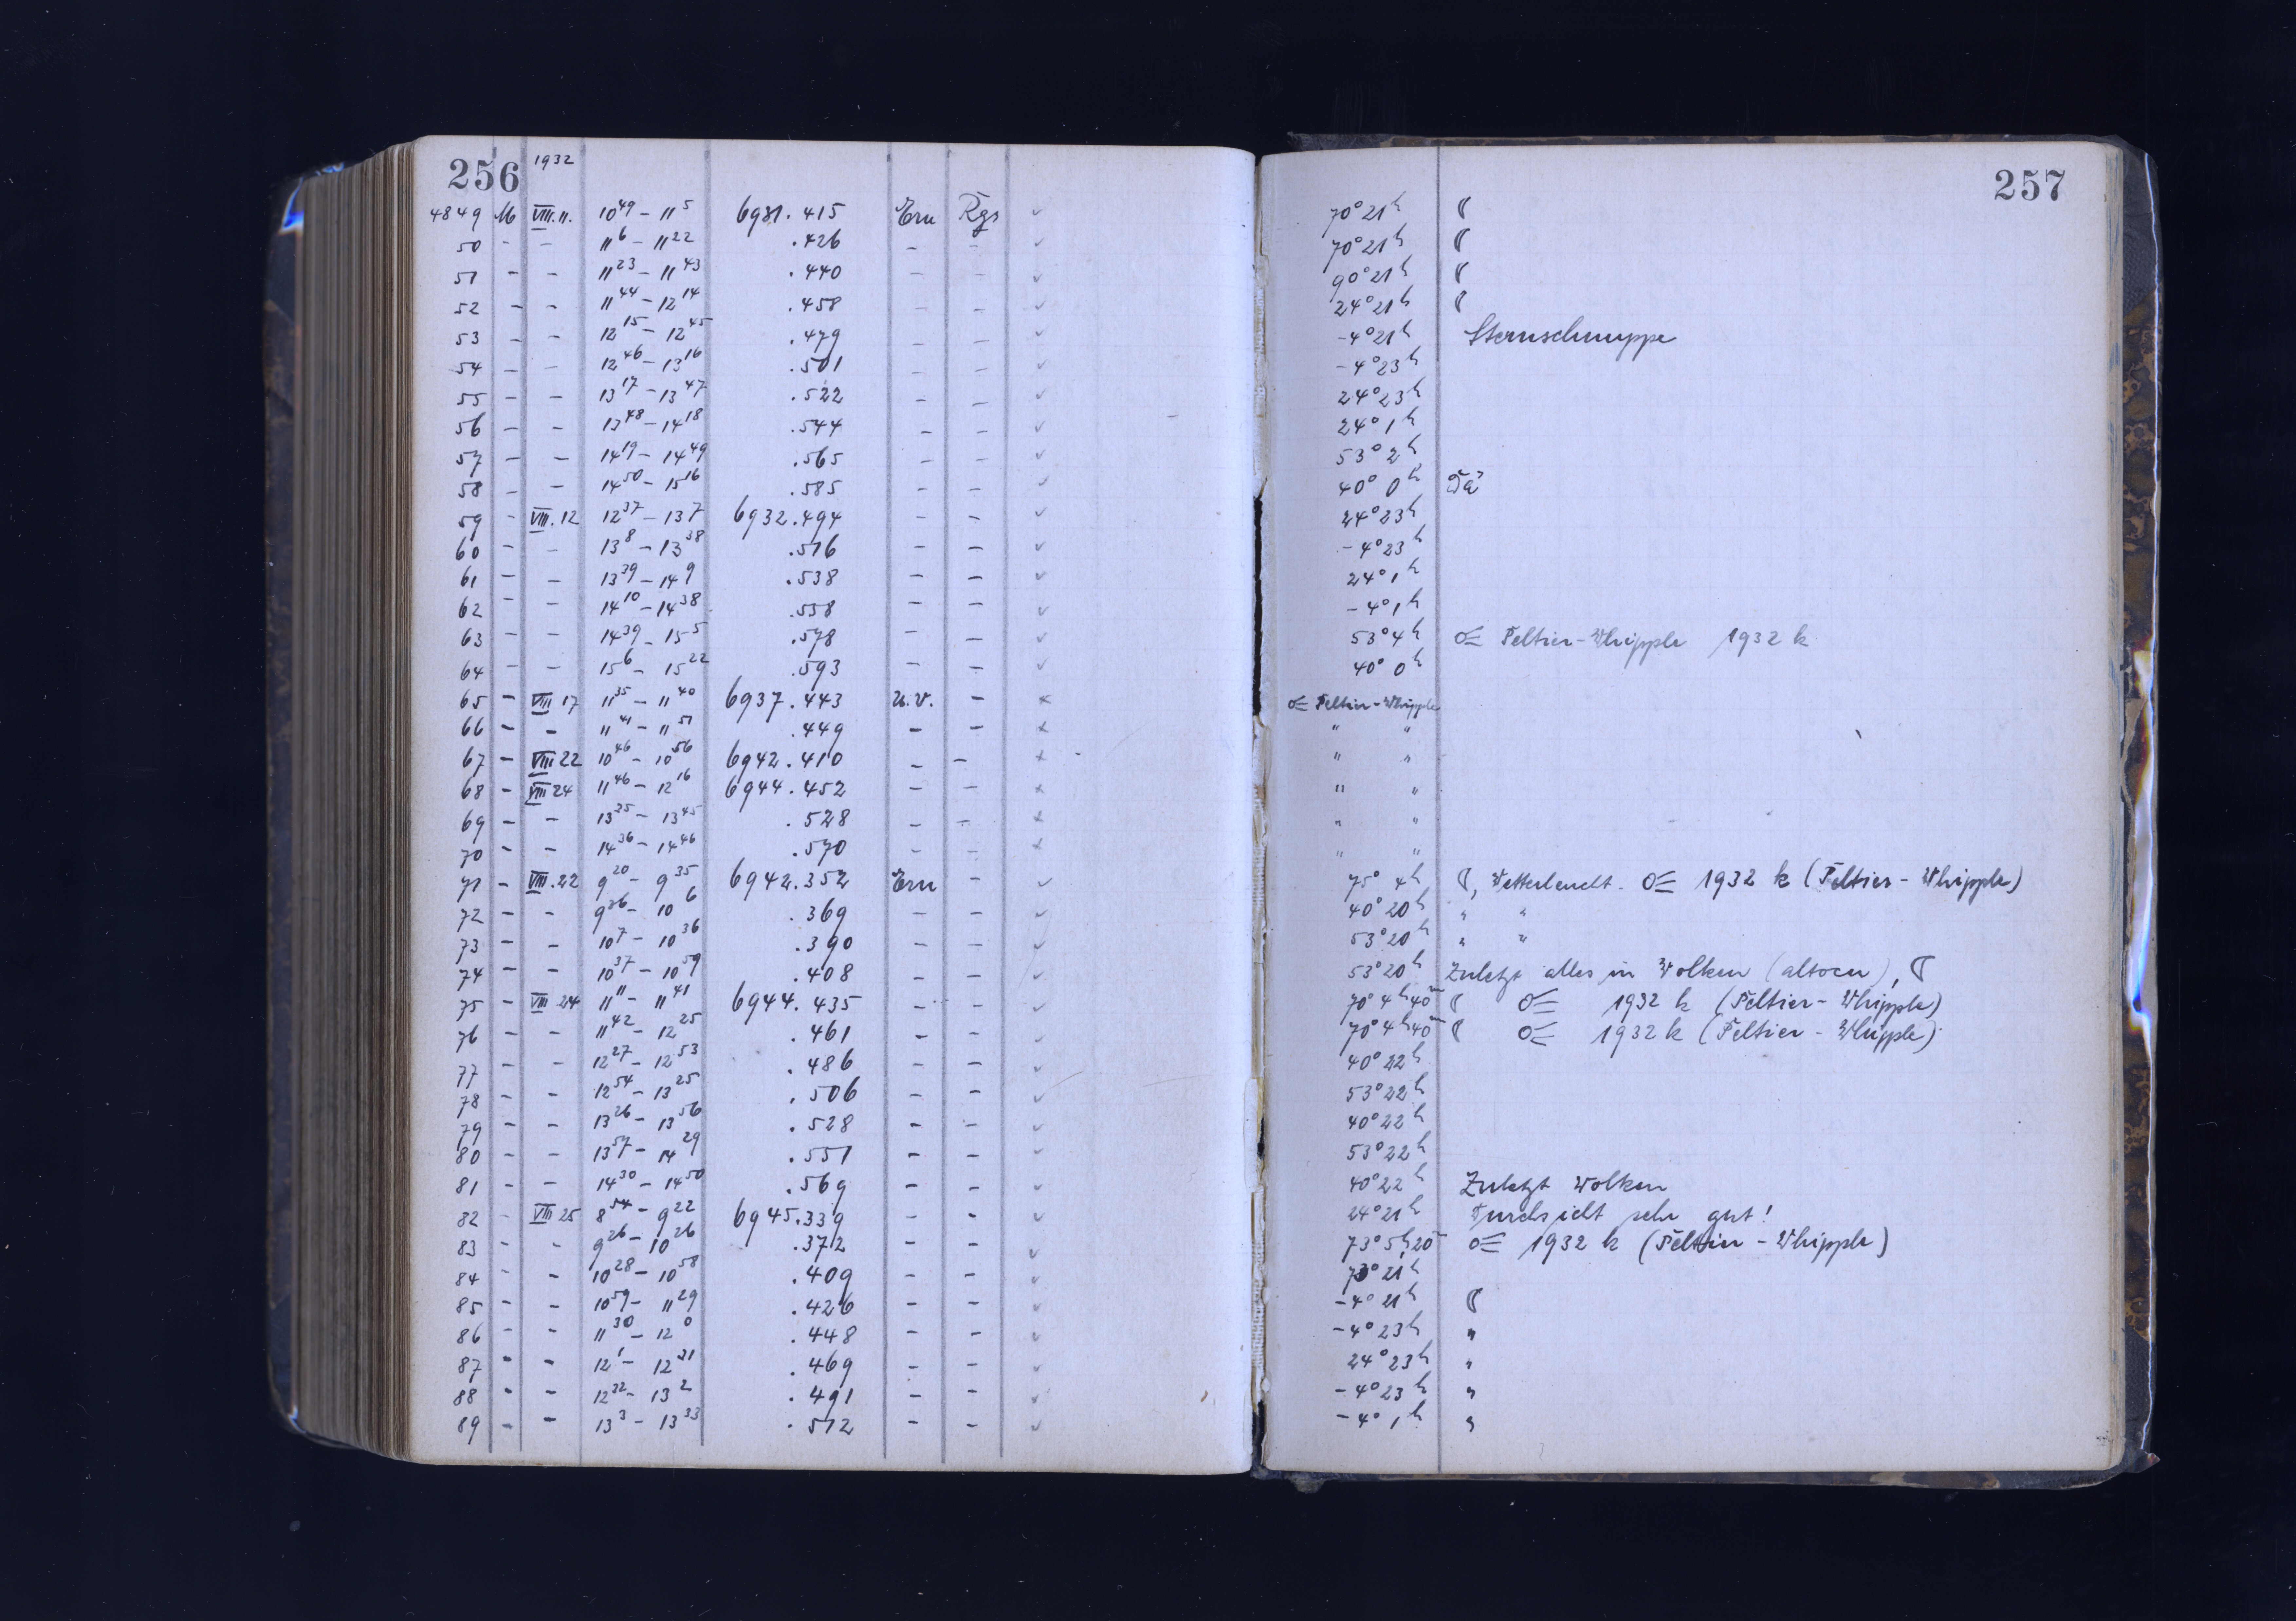 256 1932
4849 M VIII.11. 10⁴⁹ – 11⁵ 6931.415 Ern Rgs ✓
50 - - 11⁶ – 11²² .426 - - ✓
51 - - 11²³ – 11⁴³ .440 - - ✓
52 - - 11⁴⁴ – 12¹⁴ .458 - - ✓
53 - - 12¹⁵ – 12⁴⁵ .479 - - ✓
54 - - 12⁴⁶ – 13¹⁶ .501 - - ✓
55 - - 13¹⁷ – 13⁴⁷ .522 - - ✓
56 - - 13⁴⁸ – 14¹⁸ .544 - - ✓
57 - - 14¹⁹ – 14⁴⁹ .565 - - ✓
58 - - 14⁵⁰ – 15¹⁶ .585 - - ✓
59 - VIII.12 12³⁷ – 13⁷ 6932.494 - - ✓
60 - - 13⁸ – 13³⁸ .516 - - ✓
61 - - 13³⁹ – 14⁹ .538 - - ✓
62 - - 14¹⁰ – 14³⁸ .558 - - ✓
63 - - 14³⁹ – 15⁵ .578 - - ✓
64 - - 15⁶ – 15²² .593 - - ✓
65 - VIII 17 11³⁵ – 11⁴⁰ 6937.443 u.V. - ×
66 - - 11⁴¹ – 11⁵¹ .449 - - ×
67 - VIII 22 10⁴⁶ – 10⁵⁶ 6942.410 - - ×
68 - VIII 24 11⁴⁶ – 12¹⁶ 6944.452 - - ×
69 - - 13³⁵ – 13⁴⁵ .528 - - ×
70 - - 14³⁶ – 14⁴⁶ .570 - - ×
71 - VIII.22 9²⁰ – 9³⁵ 6942.352 Ern - ✓
72 - - 9³⁶ – 10⁶ .369 - - ✓
73 - - 10⁷ – 10³⁶ .390 - - ✓
74 - - 10³⁷ – 10⁵⁹ .408 - - ✓
75 - VIII 24 11¹¹ – 11⁴¹ 6944.435 - - ✓
76 - - 11⁴² – 12²⁵ .461 - ✓
77 - - 12²⁷ – 12⁵³ .486 - - ✓
78 - - 12⁵⁴ – 13²⁵ .506 - - ✓
79 - - 13²⁶ – 13⁵⁶ .528 - - ✓
80 - - 13⁵⁷ – 14²⁹ .551 - - ✓
81 - - 14³⁰ – 14⁵⁰ .569 - - ✓
82 - VIII 25 8⁵⁴ – 9²² 6945.339 - - ✓
83 - - 9²⁶ – 10²⁶ .372 - - ✓
84 - - 10²⁸ – 10⁵⁸ .409 - - ✓
85 - - 10⁵⁹ – 11²⁹ .426 - - ✓
86 - - 11³⁰ – 12⁰ .448 - - ✓
87 - - 12¹ – 12³¹ .469 - - ✓
88 - - 12³² – 13² .491 - - ✓
89 - - 13³ – 13³³ .512 - - ✓
257
70° 21ʰ ☾
70° 21ʰ ☾
90° 21ʰ ☾
24° 21ʰ ☾
-4° 21ʰ Sternschnuppe
-4° 23ʰ
24° 23ʰ
24° 1ʰ
53° 2ʰ
40° 0ʰ Dä
24° 23ʰ
-4° 23ʰ
24° 1ʰ
-4° 1ʰ
53° 4ʰ ☄ Peltier-Whipple 1932 k
40° 0ʰ
☄ Peltier-Whipple
" "
" "
" "
" "
" "
75° 4ʰ ☾, Wetterleucht. ☄ 1932 k (Peltier - Whipple)
40° 20ʰ " "
53° 20ʰ " "
53° 20ʰ Zuletzt alles in Wolken (altocu), ☾
70° 4ʰ40ᵐ ☾ ☄ 1932 k (Peltier - Whipple)
70° 4ʰ40ᵐ ☾ ☄ 1932 k (Peltier - Whipple)
40° 22ʰ
53° 22ʰ
40° 22ʰ
53° 22ʰ
40° 22ʰ Zuletzt Wolken
24° 21ʰ Durchsicht sehr gut!
73° 5ʰ20ᵐ ☄ 1932 k (Peltier - Whipple)
73° 21ʰ
-4° 21ʰ ☾
-4° 23ʰ "
24° 23ʰ "
-4° 23ʰ "
-4° 1ʰ "